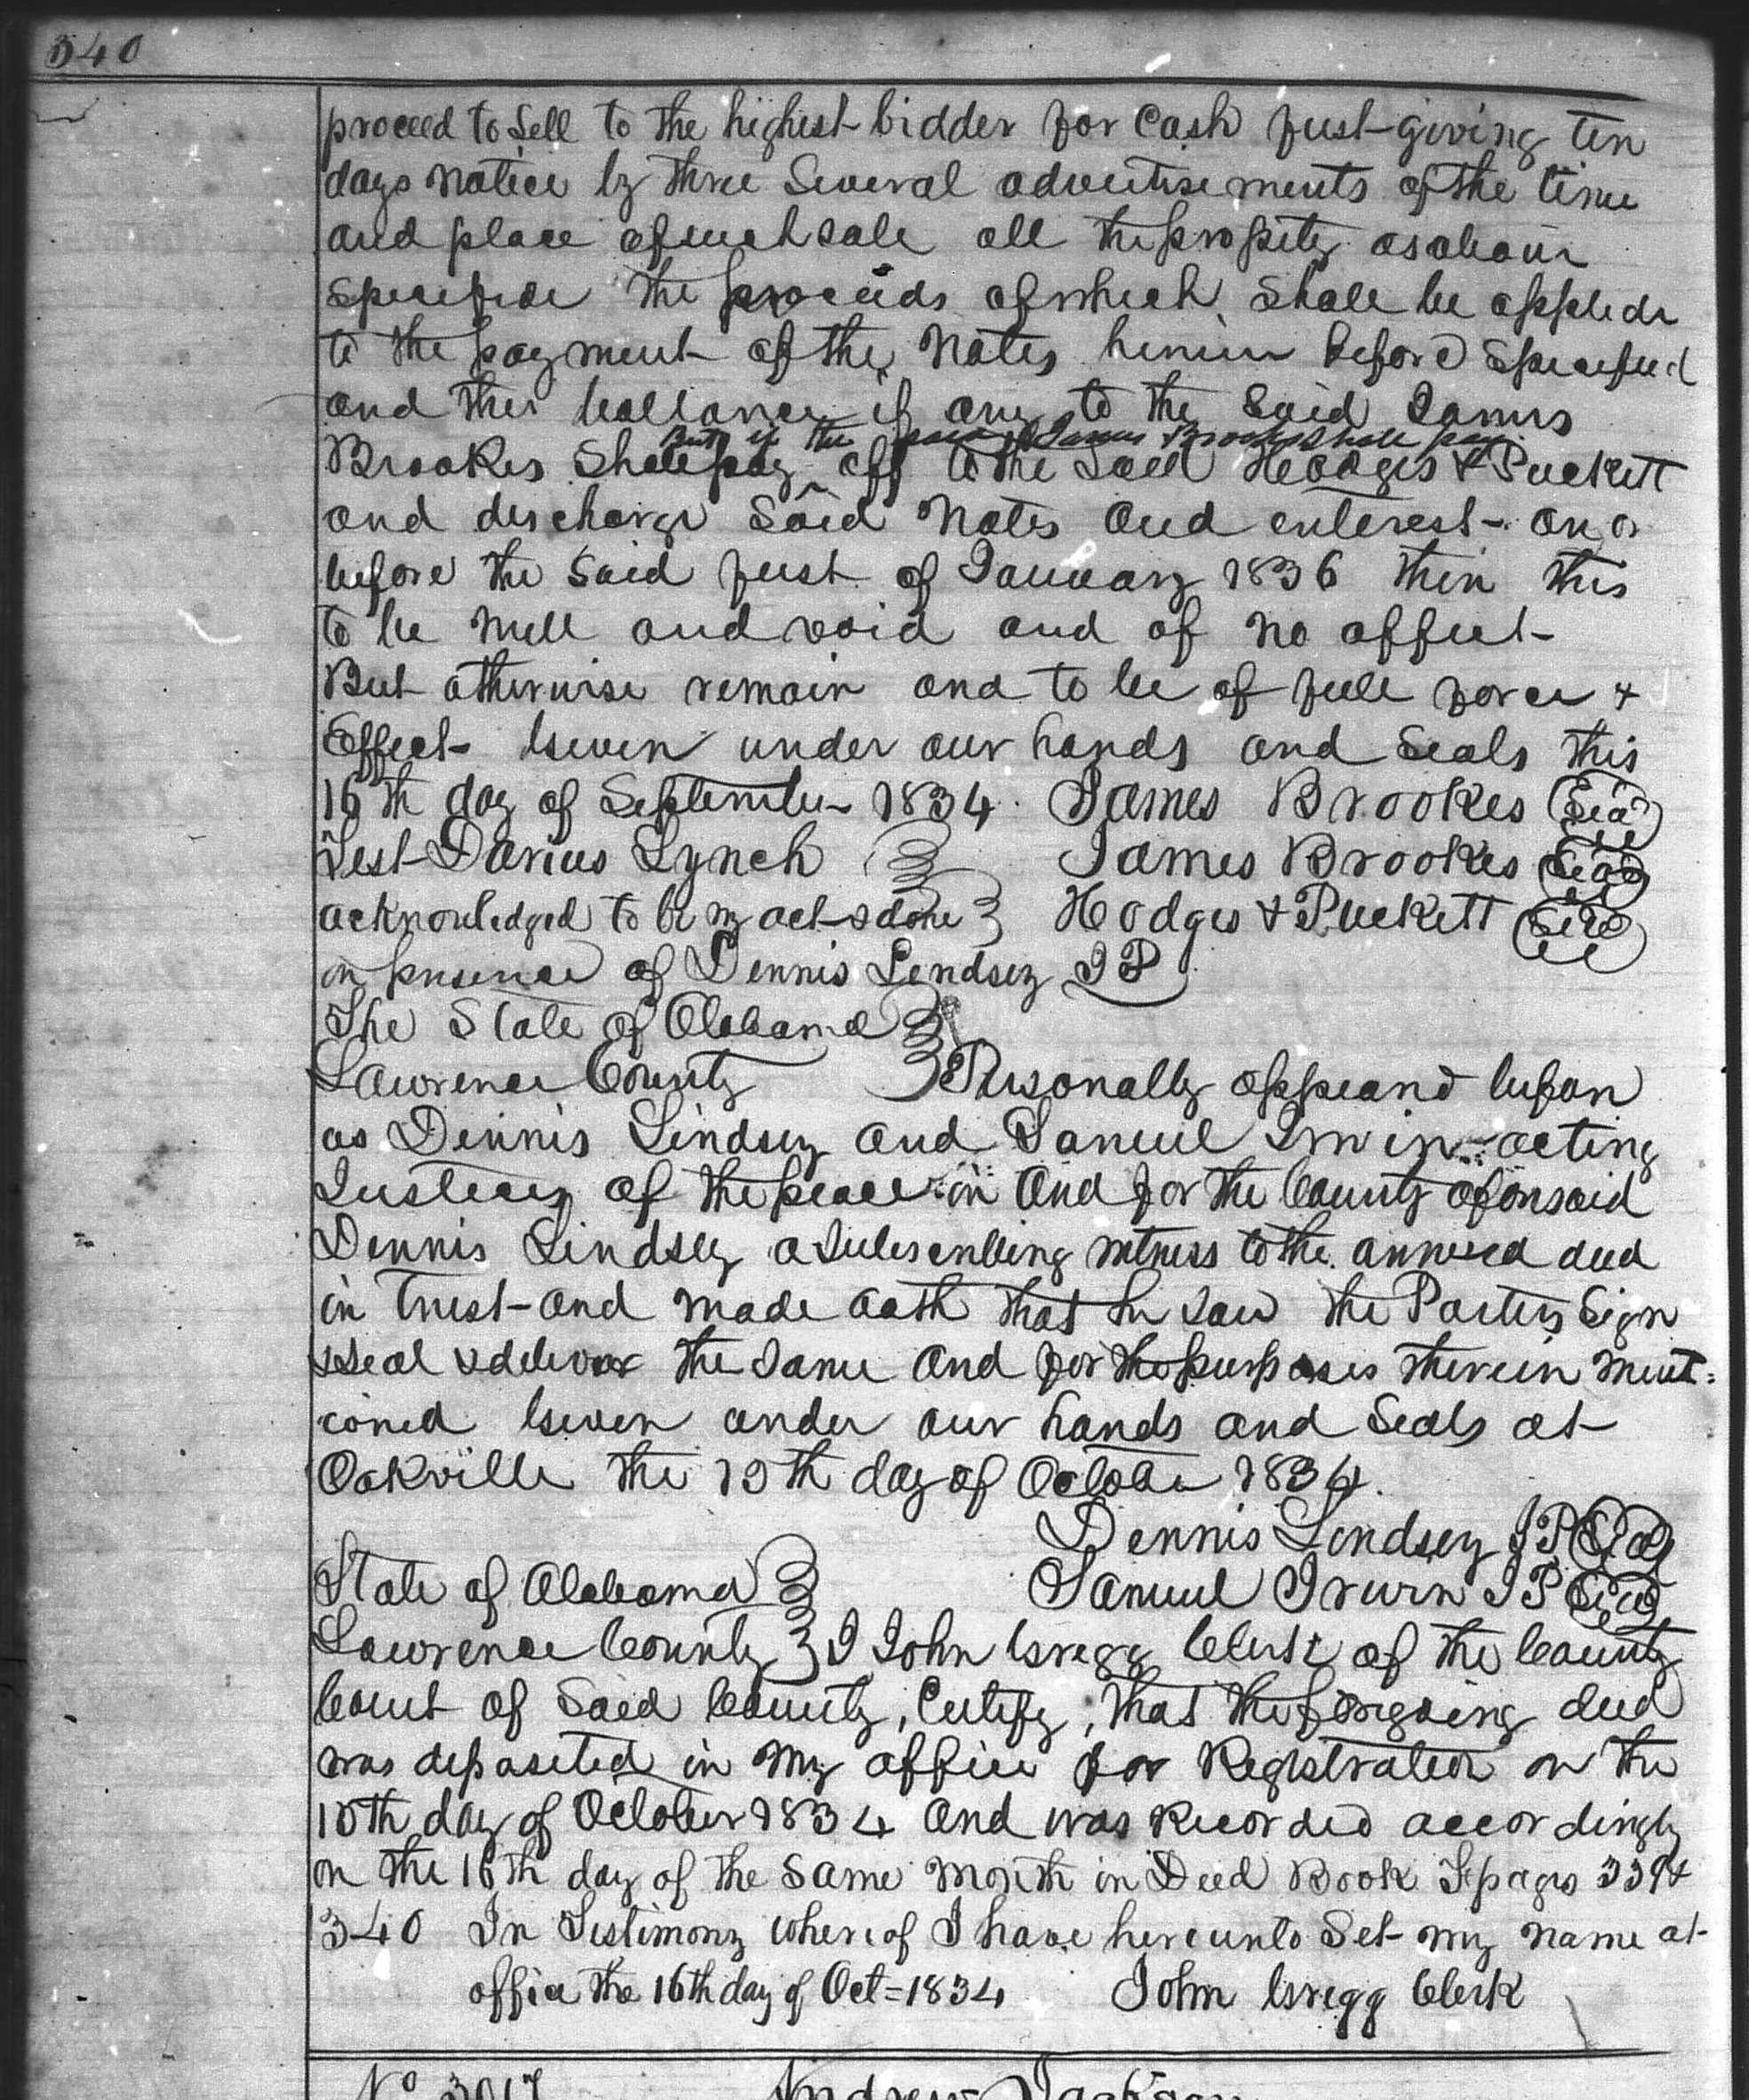 340
proceed to Sell to the highest bidder for Cash first giving ten
days notice by three Several advertisements of the time
and place of such sale all the propety as above
Specifide the proceeds of which Shall be applede
to the payment of the Notes herein before Specified
and the ballance if any to the Said James
But if the said James Brookes Shall pay
Brookes Shall pay off to the Said Hodges & Puckett
and discharge Said Notes and enterest on or
before the Said first of January 1836 then this
to be Null and void and of no affect
But otherwise remain and to be of full force &
Effect Given under our hands and Seals this
16th day of September 1834 James Brookes Seal
Test Darius Lynch James Brookes Seal
acknowledged to be my act & done Hodges & Puckett Seal
in presence of Dennis Lendsey JP
The State of Alabama
Lawrence County Personally appeard before
us Dennis Lindsey and Samuel Irwin acting
Justices of the peace in and for the County aforesaid
Dennis Lindsey a Subscribing witness to the annexed deed
in trust and made oath that he saw the Parties Sign
& Seal & deliver the Same and for the purposes therein ment=
ioned Given under our hands and Seals at
Oakville the 13th day of October 1834.
Dennis Lendsey JP Seal
State of Alabama Samuel Irwin JP Seal
Lawrence County I John Gregg Clerk of the County
Court of Said County, Certify, that the foregoing deed
was deposited in my office for Registration on the
15th day of October 1834 and was Recorded accordingly
on the 16th day of the Same Month in Deed Book pages 339 &
340 In Testimony whereof I have hereunto Set my name at
office the 16th day of Oct=1834 John Gregg Clerk
No 3017 Andrew Jackson